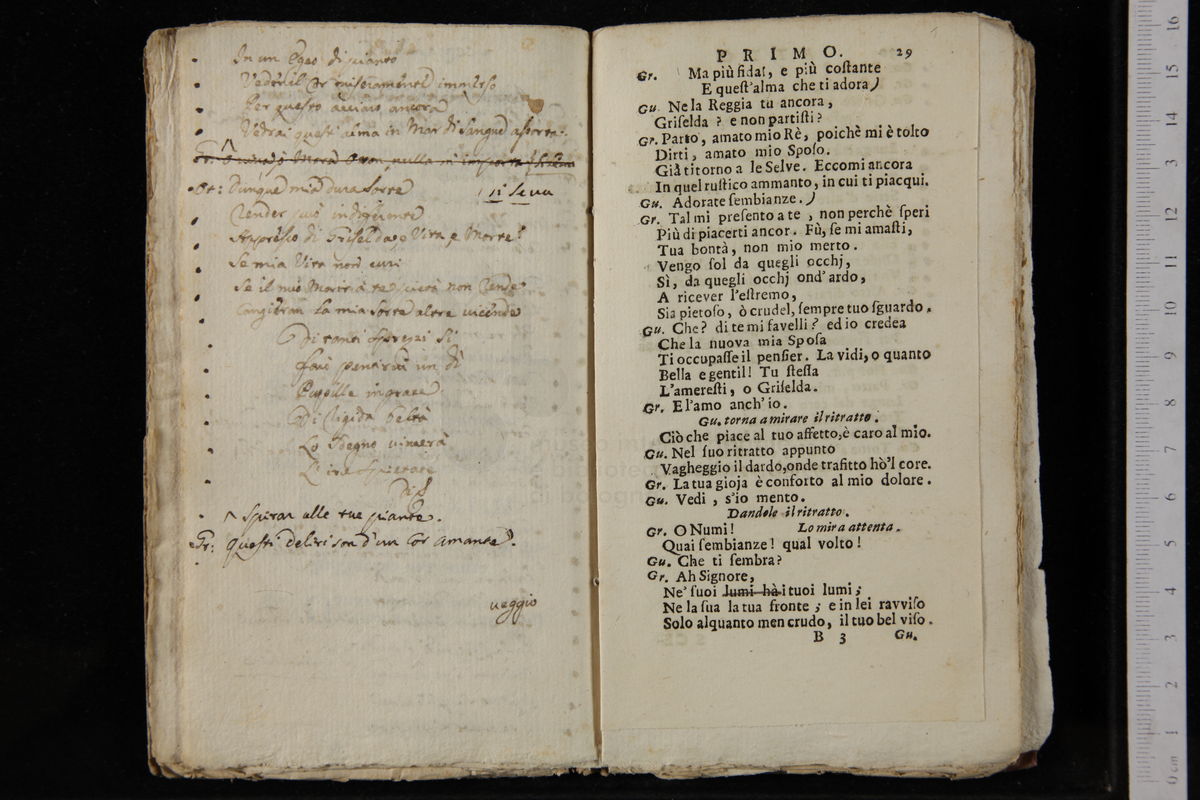 In un
Vedrai quest'alma in Mar di sangue
mia dura sorte
si leva
Render può
di Griselda o Vita o Morte?
Se mia Vita non curi
Cangieran la mia sorte altre vicende
Di tanti sprezzi sì
farò un dì
Pupille ingrate
Di rigida beltà
Lo sdegno vincerà
L'ire spietate
Spirar alle tue piante.
Gr: Questi deliri son d'un Cor Amante.
veggio
PRIMO. 29
Gr. Ma più fida!, e più costante
E quest'alma che ti adora)
Gu. Ne la Reggia tu ancora,
Griselda? e non partisti?
Gr. Parto, amato mio Rè, poichè mi è tolto
Dirti, amato mio Sposo.
Già ti torno a le Selve. Eccomi ancora
In quel rustico ammanto, in cui ti piacqui.
Gu. Adorate sembianze.)
Gr. Tal mi presento a te, non perchè speri
Più di piacerti ancor. Fù, se mi amasti,
Tua bontà, non mio merto.
Vengo sol da quegli occhj,
Sì, da quegli occhj ond'ardo,
A ricever l'estremo,
Sia pietoso, ò crudel, sempre tuo sguardo.
Gu. Che? di te mi favelli? ed io credea
Che la nuova mia Sposa
Ti occupasse il pensier. La vidi, o quanto
Bella e gentil! Tu stessa
L'ameresti, o Griselda.
Gr. E l'amo anch'io.
Gu. torna a mirare il ritratto.
Ciò che piace al tuo affetto, è caro al mio.
Gu. Nel suo ritratto appunto
Vagheggio il dardo, onde trafitto hò'l core.
Gr. La tua gioja è conforto al mio dolore.
Gu. Vedi, s'io mento.
Dandole il ritratto.
Gr. O Numi! Lo mira attenta.
Quai sembianze! qual volto!
Gu. Che ti sembra?
Gr. Ah Signore,
Ne' suoi lumi hà i tuoi lumi;
Ne la sua la tua fronte; e in lei ravviso
Solo alquanto men crudo, il tuo bel viso.
B 3 Gu.